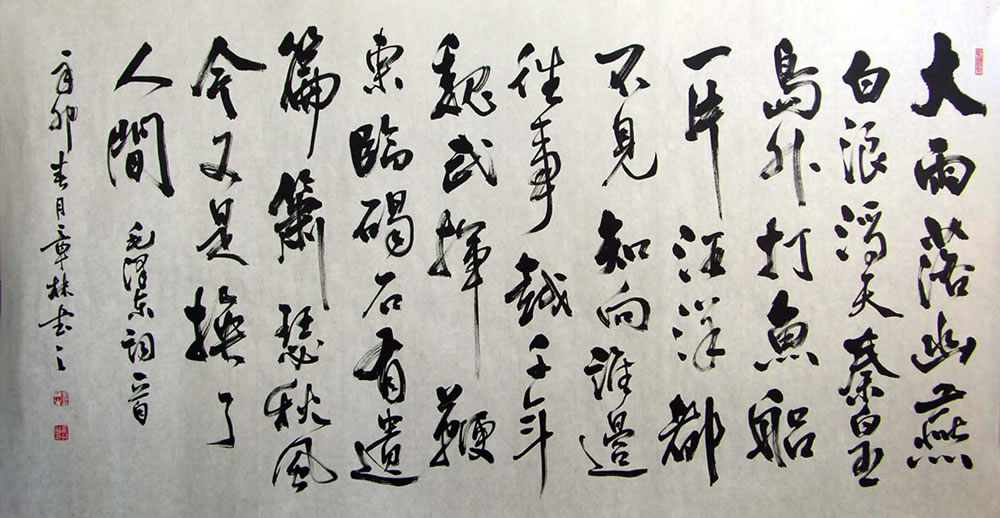 大雨落幽燕
白浪滔天秦皇
島外打魚船
一片汪洋都
不見知向誰邊
往事越千年
魏武揮鞭
東臨碣石有遺
篇蕭瑟秋風
今又是換了
人間
毛澤東詞一首
辛卯春月章林書之